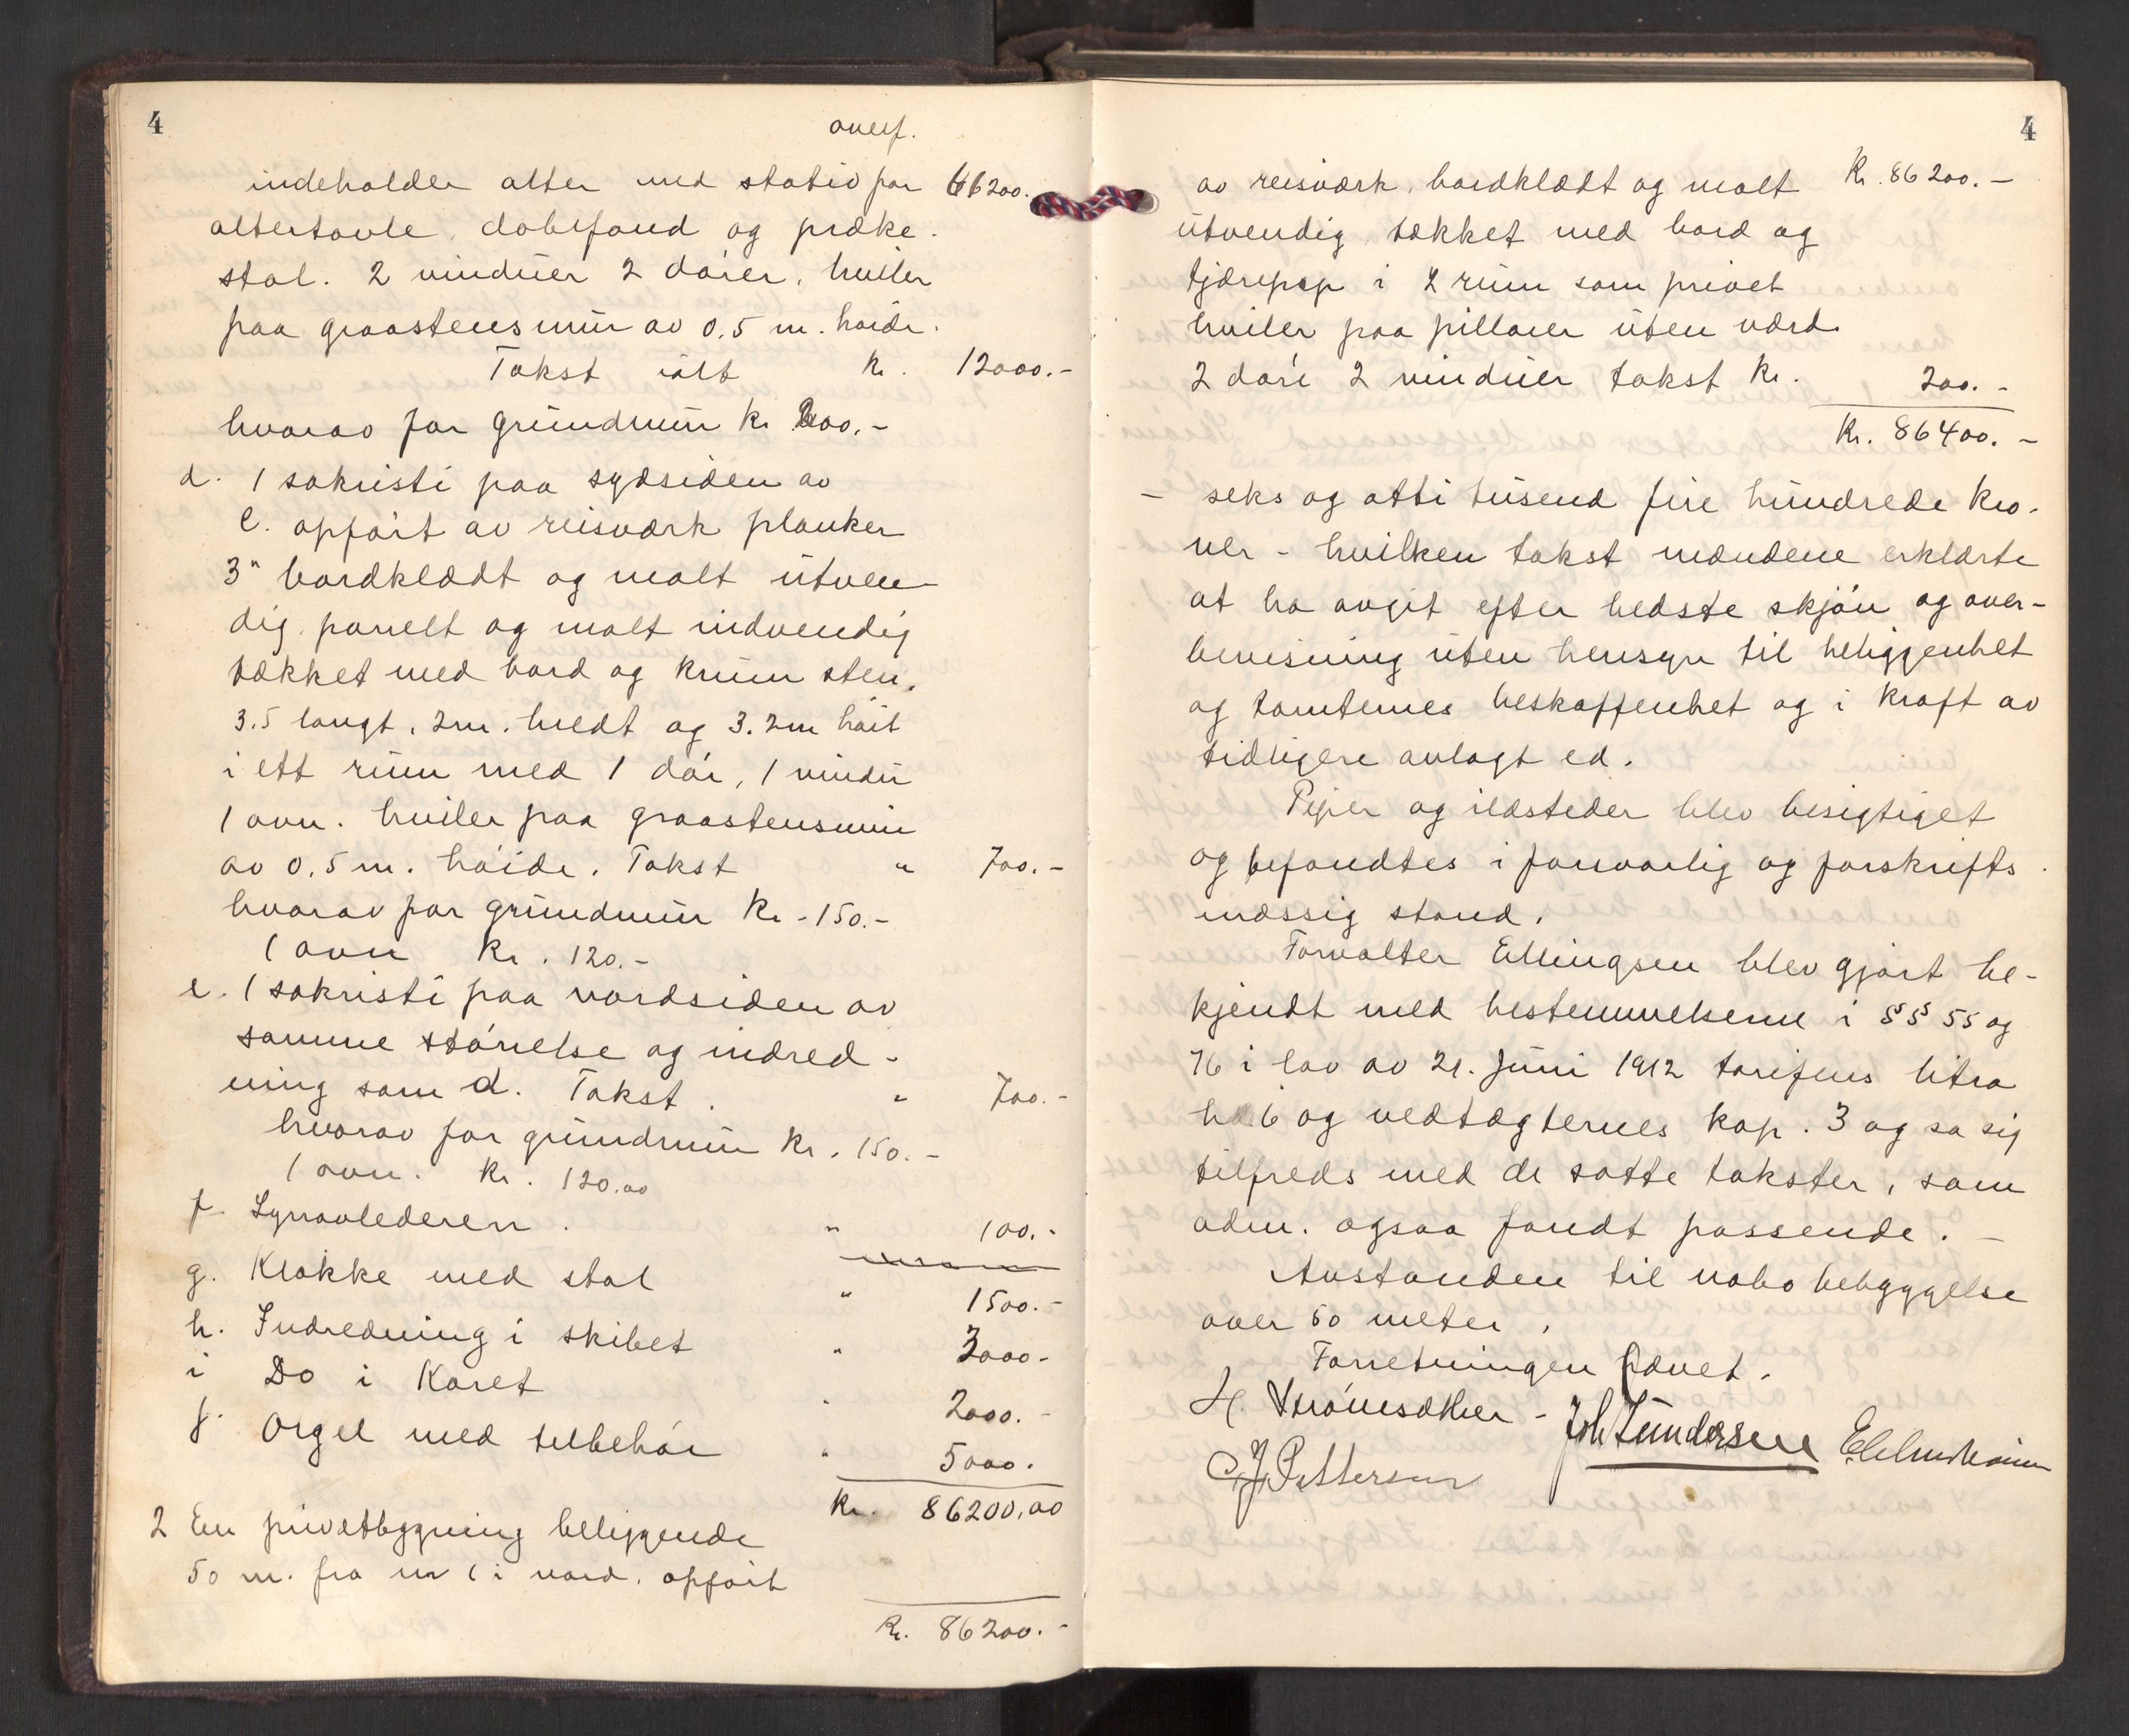 4
overf.
indeholder alter med stativ for 66200.-
altertavle, døbefond og præke-
stol. 2 vinduer 2 dører, hviler
paa graastensmur av 0,5 m. høide.
Takst ialt kr. 12000.-
hvorav for grundmur kr 200,-
d. 1 sakristi paa sydsiden av
c. opført av reisværk planker
3" bordklædt og malt utven-
dig, panelt og malt indvendig
tækket med bord og krum sten,
3.5 langt, 2m. bredt og 3.2m høit
i ett rum med 1 dør, 1 vindu
1 ovn. hviler paa graastensmur
av 0,5 m. høide. Takst " 700.-
hvorav for grundmur kr. 150.-
1 ovn kr. 120.-
e. 1 sakristi paa nordsiden av
samme størrelse og indred-
ning som d. Takst. " 700.-
hvorav for grundmur kr. 150.-
1 ovn. kr. 120.00
f. Lynavlederen . " 100.-
g. Klokke med stol " 1500.-
h. Indredning i skibet " 3000-
i Do i Koret " 2000.-
j. Orgel med tilbehør " 5000.
Kr. 86200,00
2 En privetbygning beliggende
50 m. fra nr 1 i nord. opført
Kr. 86200.-
4
av reisværk, bordklædt og malt Kr. 86200.-
utvendig, tækket med bord og
tjærepap i 2 rum som privet
hviler paa pillarer uten værd.
2 døre 2 vinduer takst kr. 200.-
Kr. 86400.-
- seks og otti tusend fire hundrede kro-
ner - hvilken takst mændene erklærte
at ha avgit efter bedste skjøn og over-
bevisning uten hensyn til beliggenhet
og tomternes beskaffenhet og i kraft av
tidligere avlagt ed.
Piper og ildsteder blev besigtiget
og befandtes i forsvarlig og forskrifts
mæssig stand.
Forvalter Ellingsen blev gjort be-
kjendt med bestemmelserne i §§ 55 og
76 i lov av 21. juni 1912 tarifens litra
h 6 og vedtægternes kap. 3 og sa sig
tilfreds med de satte takster, som
adm. ogsaa fandt passende. -
Avstanden til nabo bebyggelse
over 50 meter.
Forretningen hævet.
H. Strømsæther - Joh Gundersen
J. Pettersen